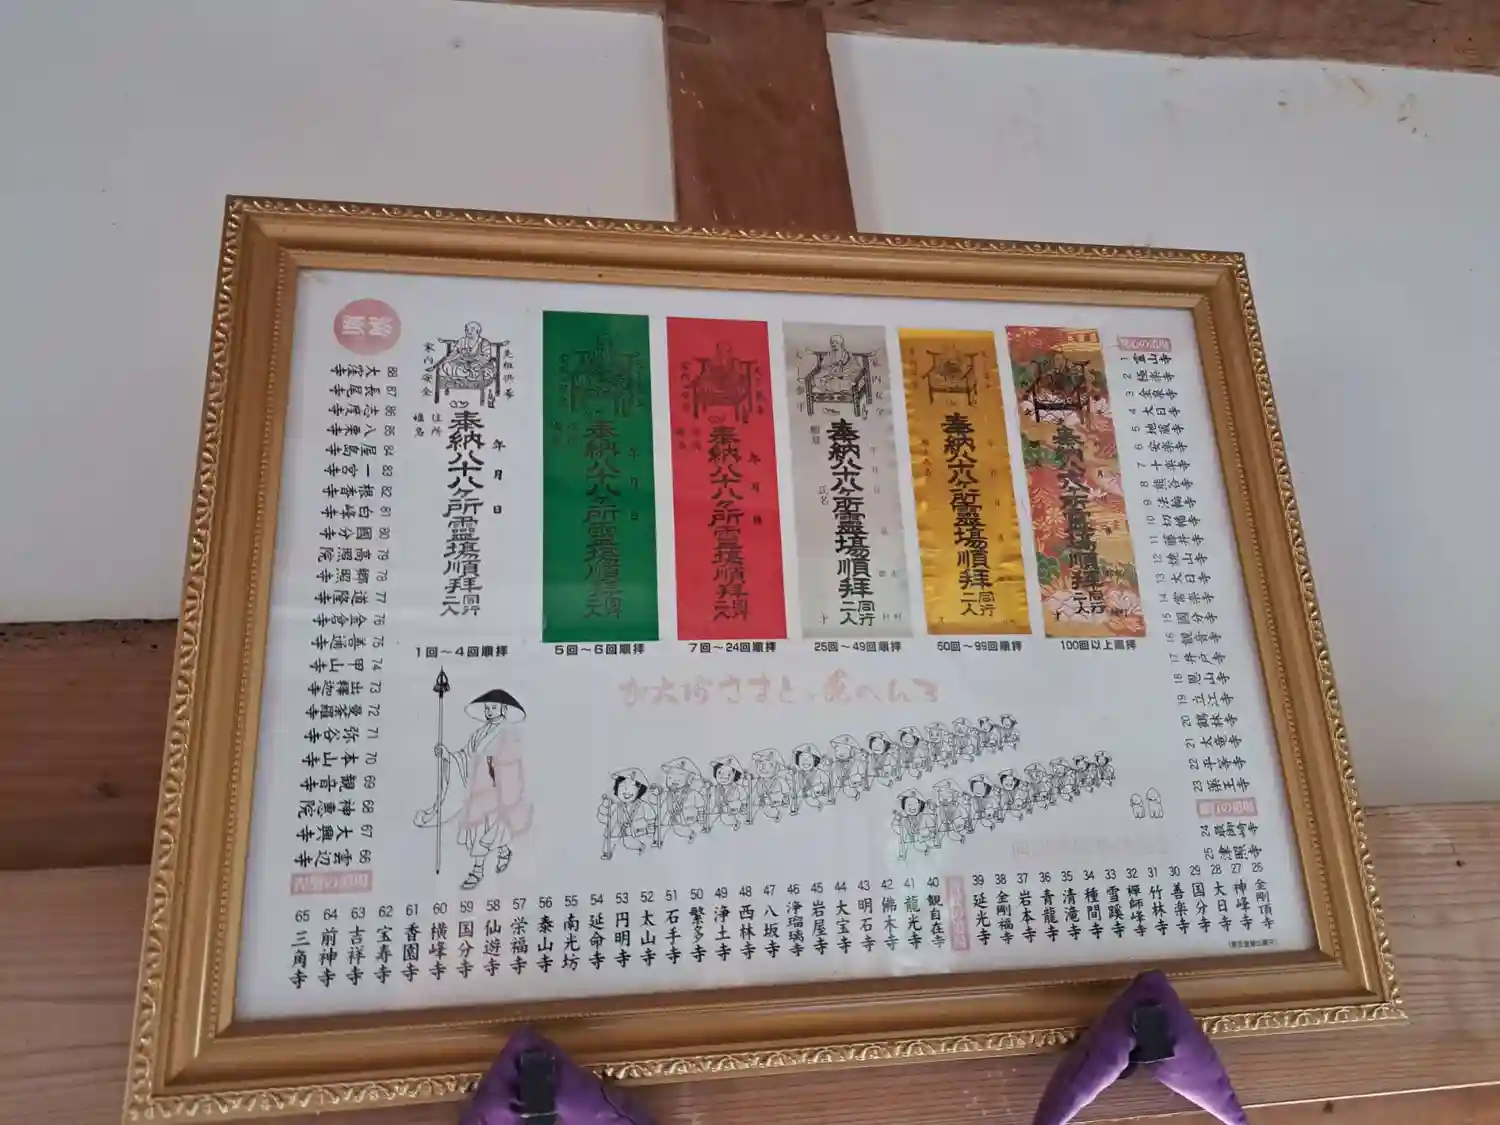 奉納八十八ヶ所霊場順拝
同行二人
年 月 日
住所
家内安全
奉納八十八ヶ所霊場順拝
同行二人
奉納八十八ヶ所霊場順拝
同行二人
奉納八十八ヶ所霊場順拝
同行二人
奉納八十八ヶ所霊場順拝
同行二人
奉納八十八ヶ所霊場順拝
同行二人
1回〜4回順拝
5回〜6回順拝
7回〜24回順拝
25回〜49回順拝
50回〜99回順拝
100回以上順拝
1 霊山寺
2 極楽寺
3 金泉寺
4 大日寺
5 地蔵寺
6 安楽寺
7 十楽寺
8 熊谷寺
9 法輪寺
10 切幡寺
11 藤井寺
12 焼山寺
13 大日寺
14 常楽寺
15 國分寺
16 観音寺
17 井戸寺
18 恩山寺
19 立江寺
20 鶴林寺
21 太龍寺
22 平等寺
23 薬王寺
24 最御崎寺
25 津照寺
26 金剛頂寺
27 神峰寺
28 大日寺
29 国分寺
30 善楽寺
31 竹林寺
32 禅師峰寺
33 雪蹊寺
34 種間寺
35 清滝寺
36 青龍寺
37 岩本寺
38 金剛福寺
39 延光寺
40 観自在寺
41 龍光寺
42 佛木寺
43 明石寺
44 大宝寺
45 岩屋寺
46 浄瑠璃寺
47 八坂寺
48 西林寺
49 浄土寺
50 繁多寺
51 石手寺
52 太山寺
53 円明寺
54 延命寺
55 南光坊
56 泰山寺
57 栄福寺
58 仙遊寺
59 国分寺
60 横峰寺
61 香園寺
62 宝寿寺
63 吉祥寺
64 前神寺
65 三角寺
66 雲辺寺
67 大興寺
68 神恵院
69 観音寺
70 本山寺
71 弥谷寺
72 曼荼羅寺
73 出釋迦寺
74 甲山寺
75 善通寺
76 金倉寺
77 道隆寺
78 郷照寺
79 高照院
80 國分寺
81 白峰寺
82 根香寺
83 一宮寺
84 屋島寺
85 八栗寺
86 志度寺
87 長尾寺
88 大窪寺